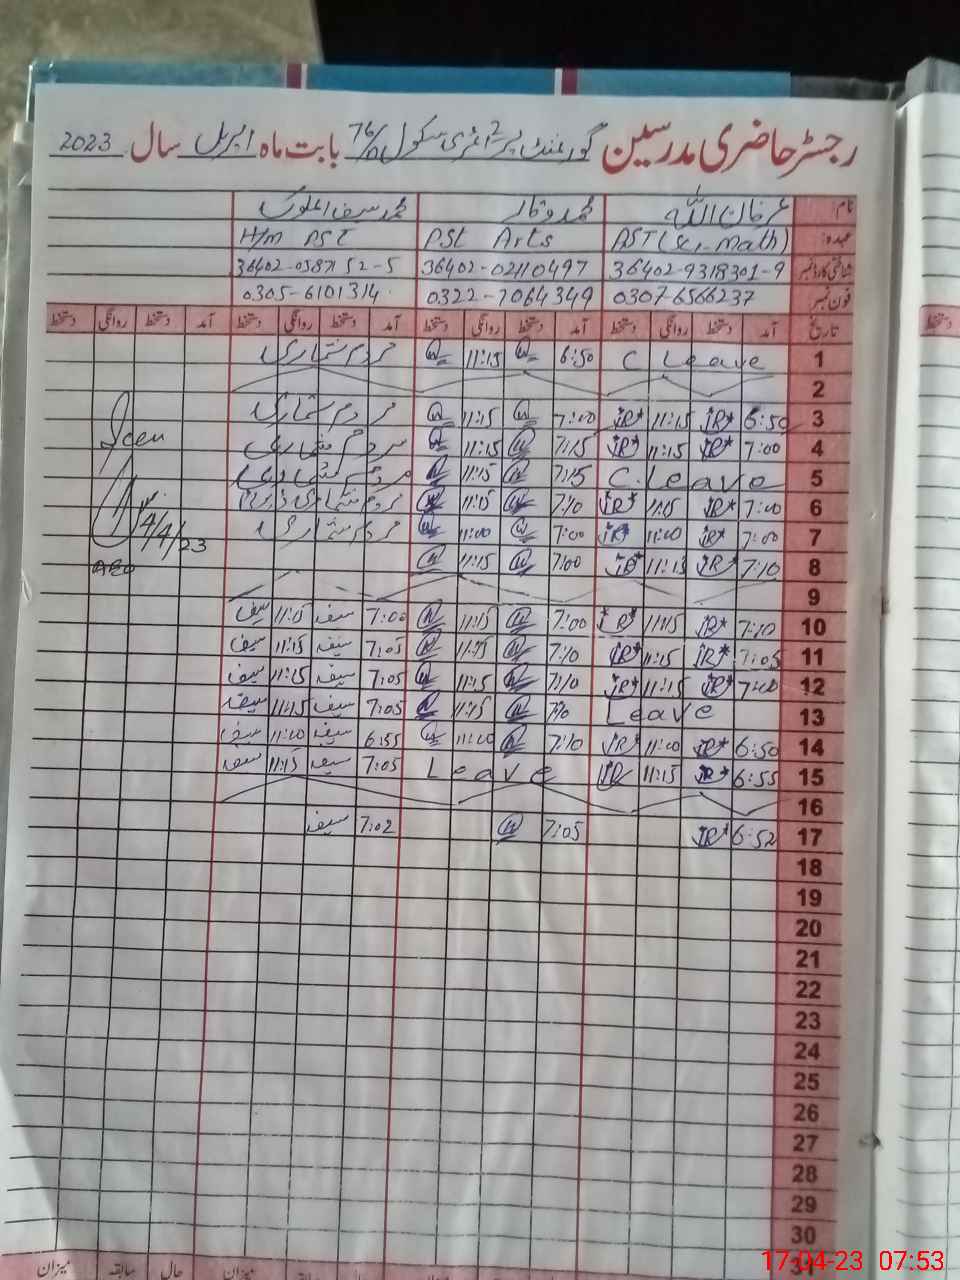 رجسٹر حاضری مدرسین گورنمنٹ پرائمری سکول 76/D بابت ماہ اپریل سال 2023
نام: عرفان اللہ محمد وقار محمد سیف الملوک
عہدہ: PST (Sci-Math) PST Arts H/m PST
شناختی کارڈ نمبر 36402-9318301-9 36402-02110497 36402-0387152-5
فون نمبر 0307-6566237 0322-7064349 0305-6101314
تاریخ آمد دستخط روانگی دستخط آمد دستخط روانگی دستخط آمد دستخط روانگی دستخط آمد دستخط روانگی دستخط
1 C Leave 6:50 11:15 مردم شماری
2
3 6:50 JR* 11:15 JR* 7:00 11:15 مردم شماری
4 7:00 JR* 11:15 JR* 7:15 11:15 مردم شماری
5 C. Leave 7:15 11:15 مردم شماری
6 7:00 JR* 11:15 JR* 7:10 11:15 مردم شماری
7 7:00 JR* 11:00 JR* 7:00 11:00 مردم شماری
8 7:10 JR* 11:15 JR* 7:00 11:15
9
10 7:10 JR* 11:15 JR* 7:00 11:15 7:00 سیف 11:15 سیف
11 7:05 JR* 11:15 JR* 7:10 11:15 7:05 سیف 11:15 سیف
12 7:00 JR* 11:15 JR* 7:10 11:15 7:05 سیف 11:15 سیف
13 Leave 11:15 7:05 سیف 11:15 سیف
14 6:50 JR* 11:00 JR* 7:10 11:00 6:55 سیف 11:00 سیف
15 6:55 JR* 11:15 JR Leave 7:05 سیف 11:15 سیف
16
17 6:52 JR* 7:05 7:02 سیف
18
19
20
21
22
23
24
25
26
27
28
29
30
31
Seen
4/4/23
AEO
میزان حال سابقہ میزان
دستخط
17-04-23 07:53